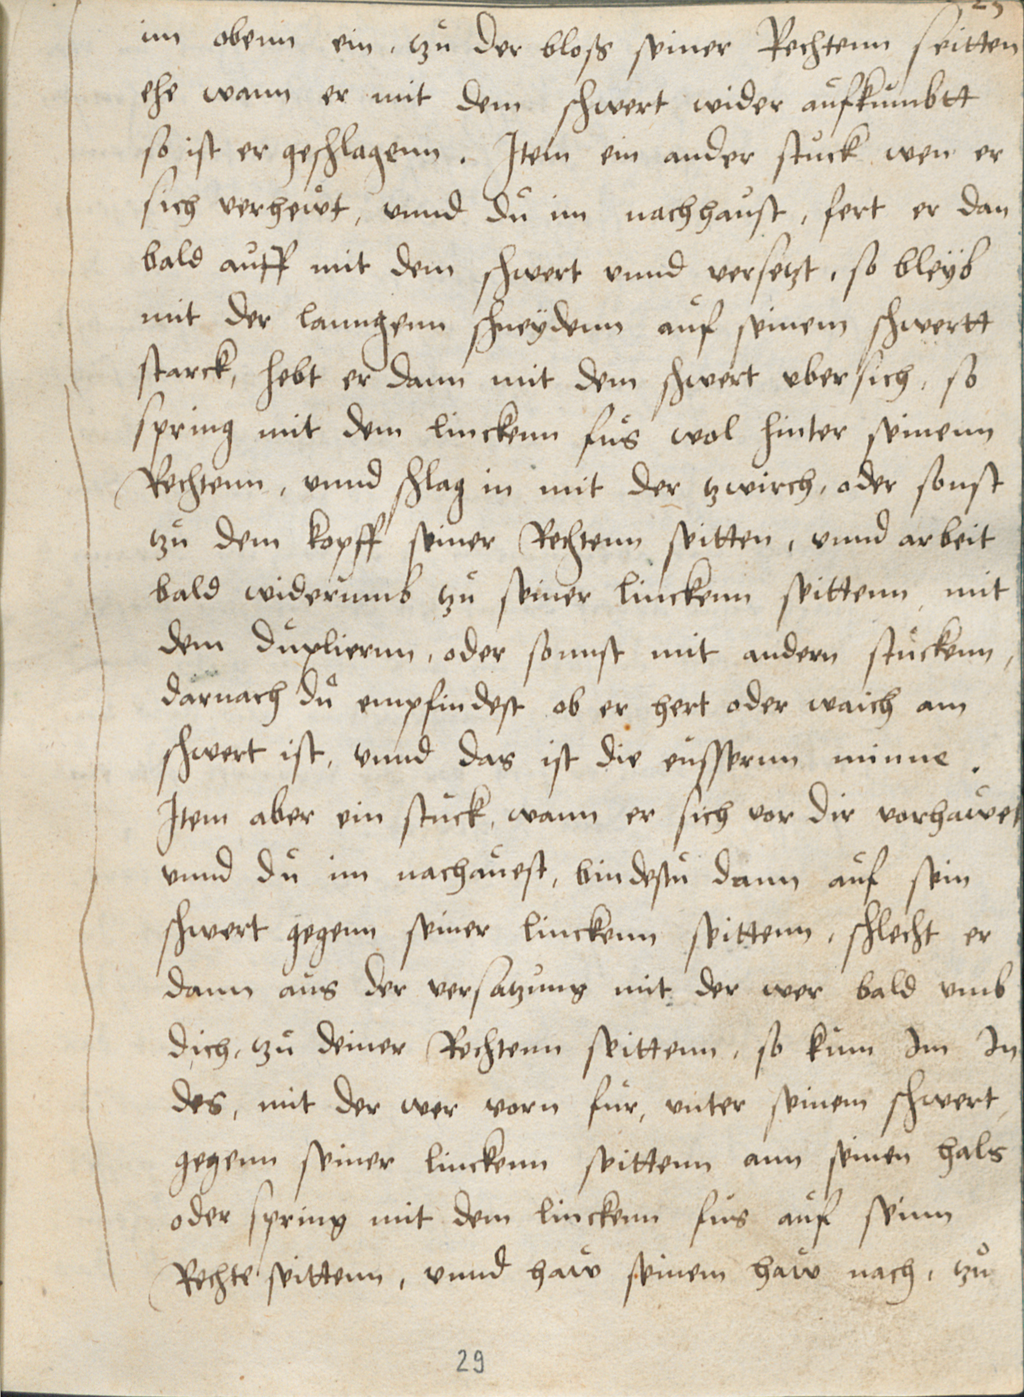 im obenn ein, tzů der bloß seiner Rechtenn seitten
ehe wann er mit dem schwert wider aůfkůmbtt
so ist er geschlagenn. Item ein ander stůck wen er
sich verhewt, vnnd dů im nachhaůst, fert er dan
bald aůff mit dem schwert vnnd versetzt, so bleÿb
mit der lanngenn schneÿdenn aůf seinem schwertt
starck, hebt er dann mit dem schwert vbersich, so
spring mit dem linckenn fůs wol hinter seinenn
Rechtenn, vnnd schlag in mit der tzwirch, oder sonst
tzů dem kopff seiner Rechtenn seitten, vnnd arbeit
bald widerůmb tzů seiner linckenn seittenn mit
dem důpliernn, oder sonnst mit andern stůckenn,
darnach dů empfindest ob er hert oder waich am
schwert ist, vnnd das ist die eůssernn minne.
Item aber ein stůck, wann er sich vor dir vorhawet
vnnd dů im nachaůest, bindestů dann aůf sein
schwert gegenn seiner linckenn seittenn, schlecht er
dann aůs der versatzůng mit der wer bald vmb
dich, tzů deiner Rechtenn seittenn, so kům Im In
des, mit der wer vorn fůr, vnter seinem schwert,
gegenn seiner linckenn seittenn ann seinen hals
oder spring mit dem linckenn fůs aůf seinn
Rechte seittenn, vnnd haw seinem haw nach, tzů
29